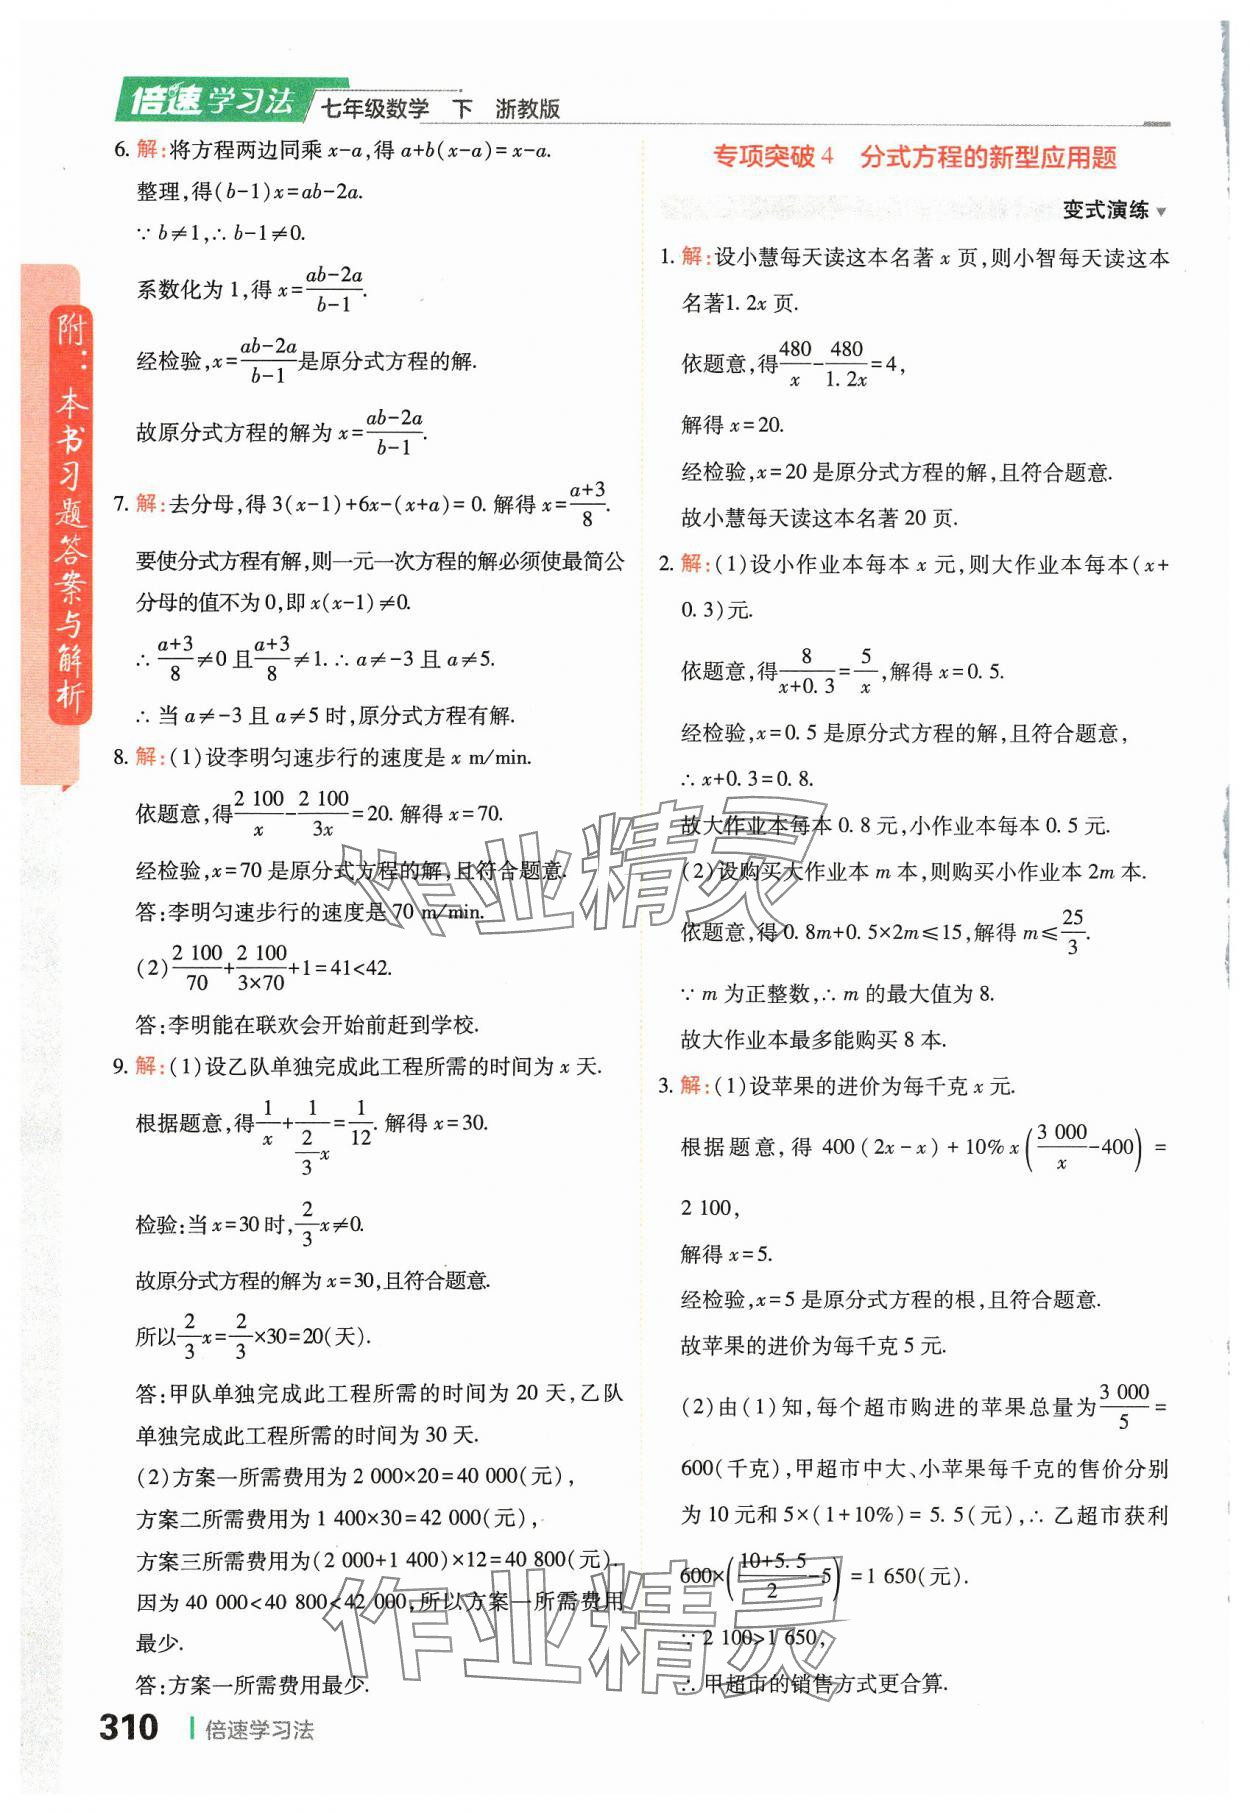 倍速学习法 七年级数学 下 浙教版
6. 解:将方程两边同乘 x-a,得 a+b(x-a)=x-a.
整理,得(b-1)x=ab-2a.
∵ b≠1,∴ b-1≠0.
系数化为 1,得 x=(ab-2a)/(b-1).
经检验,x=(ab-2a)/(b-1)是原分式方程的解.
故原分式方程的解为 x=(ab-2a)/(b-1).
7. 解:去分母,得 3(x-1)+6x-(x+a)=0. 解得 x=(a+3)/8.
要使分式方程有解,则一元一次方程的解必须使最简公
分母的值不为 0,即 x(x-1)≠0.
∴ (a+3)/8≠0 且(a+3)/8≠1. ∴ a≠-3 且 a≠5.
∴ 当 a≠-3 且 a≠5 时,原分式方程有解.
8. 解:(1)设李明匀速步行的速度是 x m/min.
依题意,得2 100/x-2 100/3x=20. 解得 x=70.
经检验,x=70 是原分式方程的解,且符合题意.
答:李明匀速步行的速度是 70 m/min.
(2)2 100/70+2 100/(3×70)+1=41<42.
答:李明能在联欢会开始前赶到学校.
9. 解:(1)设乙队单独完成此工程所需的时间为 x 天.
根据题意,得1/x+1/(2/3 x)=1/12. 解得 x=30.
检验:当 x=30 时,2/3 x≠0.
故原分式方程的解为 x=30,且符合题意.
所以2/3 x=2/3×30=20(天).
答:甲队单独完成此工程所需的时间为 20 天,乙队
单独完成此工程所需的时间为 30 天.
(2)方案一所需费用为 2 000×20=40 000(元),
方案二所需费用为 1 400×30=42 000(元),
方案三所需费用为(2 000+1 400)×12=40 800(元).
因为 40 000<40 800<42 000,所以方案一所需费用
最少.
答:方案一所需费用最少.
专项突破 4 分式方程的新型应用题
变式演练
1. 解:设小慧每天读这本名著 x 页,则小智每天读这本
名著1. 2x 页.
依题意,得480/x-480/1. 2x=4,
解得 x=20.
经检验,x=20 是原分式方程的解,且符合题意.
故小慧每天读这本名著 20 页.
2. 解:(1)设小作业本每本 x 元,则大作业本每本(x+
0. 3)元.
依题意,得8/(x+0. 3)=5/x,解得 x=0. 5.
经检验,x=0. 5 是原分式方程的解,且符合题意,
∴ x+0. 3=0. 8.
故大作业本每本 0. 8 元,小作业本每本 0. 5 元.
(2)设购买大作业本 m 本,则购买小作业本 2m 本.
依题意,得 0. 8m+0. 5×2m≤15,解得 m≤25/3.
∵ m 为正整数,∴ m 的最大值为 8.
故大作业本最多能购买 8 本.
3. 解:(1)设苹果的进价为每千克 x 元.
根据题意,得 400(2x-x)+10% x(3 000/x-400)=
2 100,
解得 x=5.
经检验,x=5 是原分式方程的根,且符合题意.
故苹果的进价为每千克 5 元.
(2)由(1)知,每个超市购进的苹果总量为3 000/5=
600(千克),甲超市中大、小苹果每千克的售价分别
为 10 元和 5×(1+10%)=5. 5(元),∴ 乙超市获利
600×((10+5. 5)/2-5)=1 650(元).
∵ 2 100>1 650,
∴ 甲超市的销售方式更合算.
附:本书习题答案与解析
作业精灵
作业精灵
310 倍速学习法